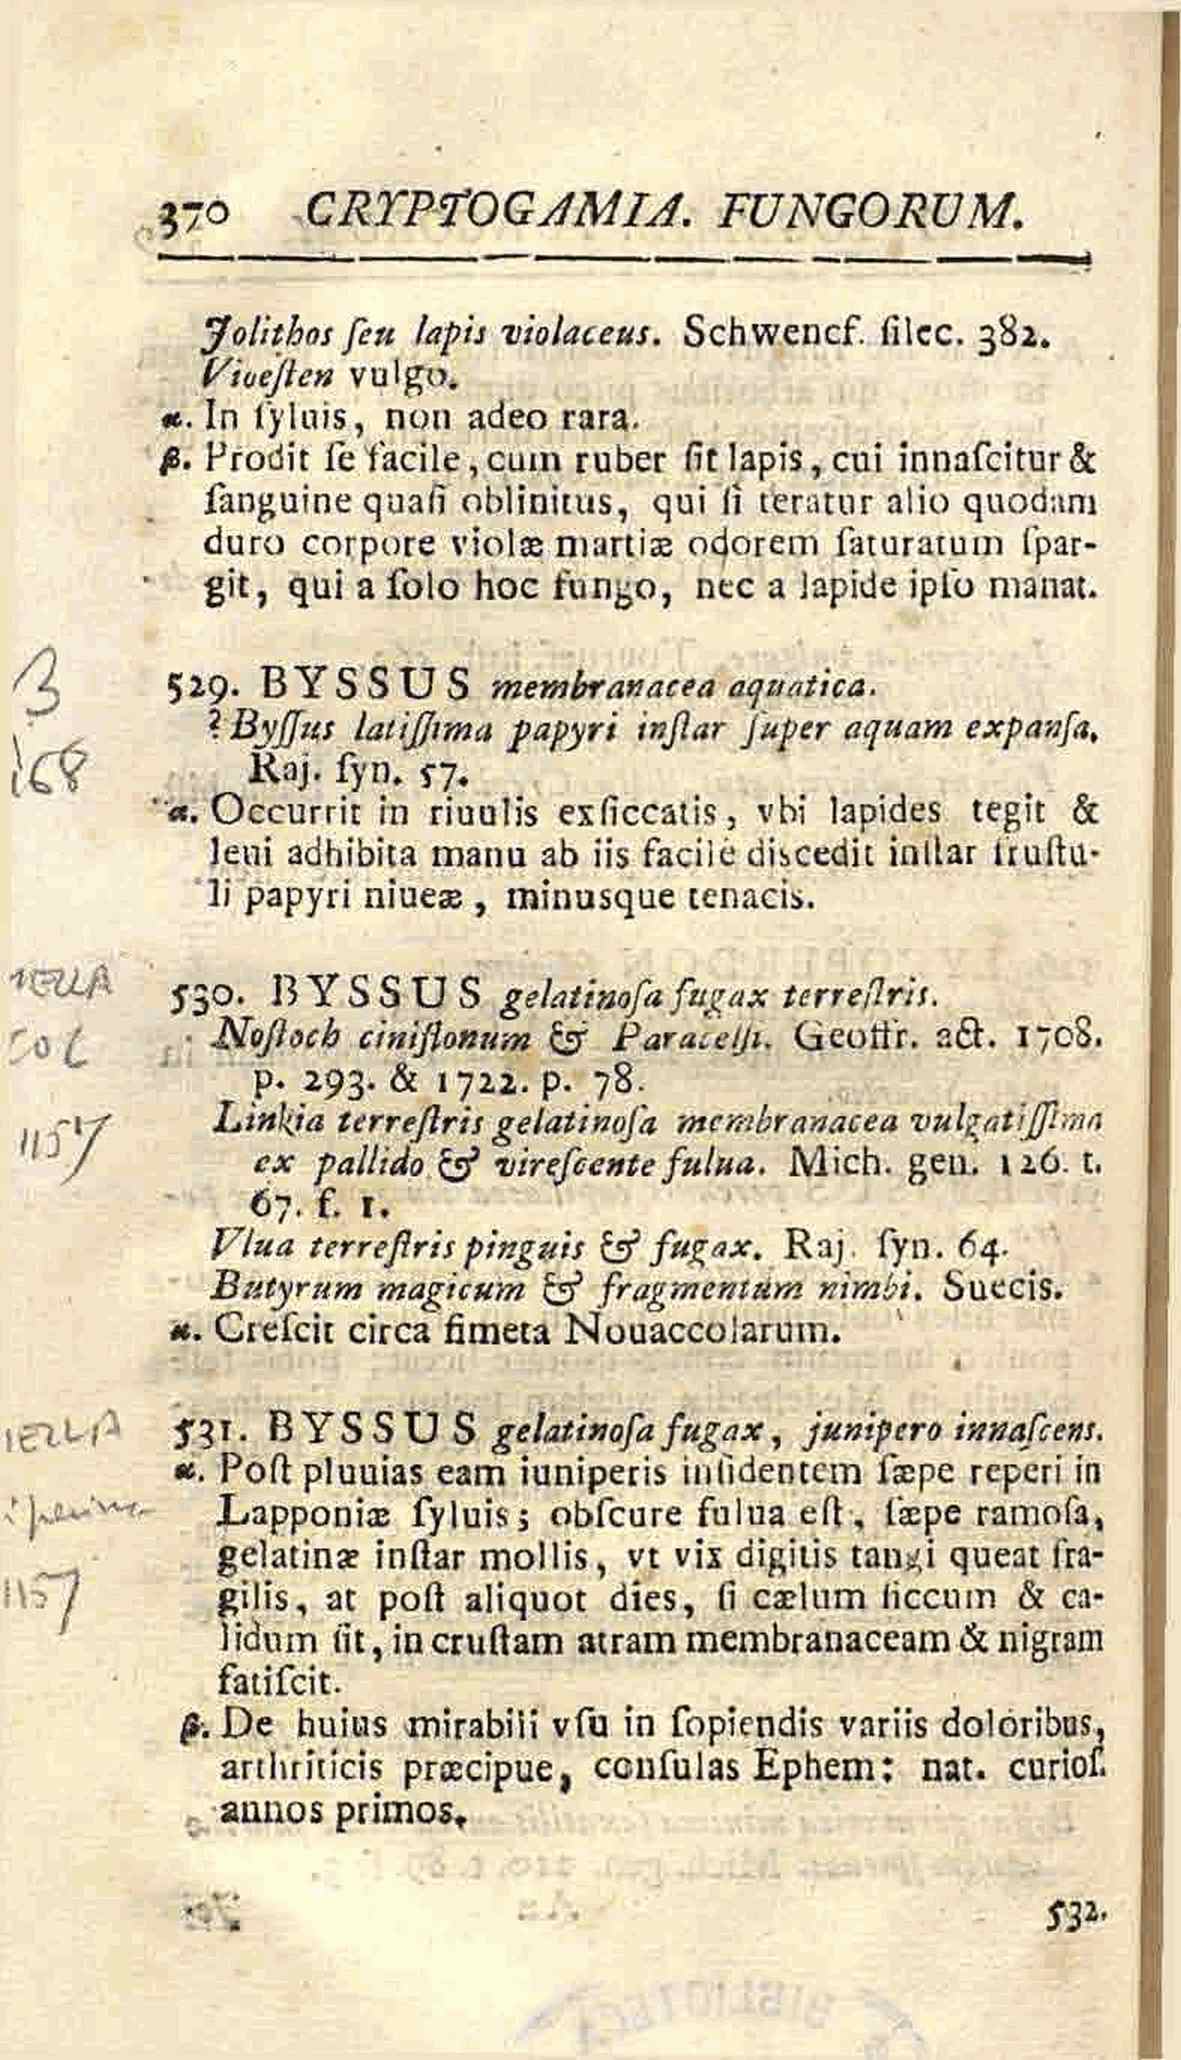 370 CRYPTOGAMIA. FUNGORUM.
Jolithos ſeu lapis violaceus. Schwencf. ſilec. 382.
Vioeſten vulgo.
α. In ſyluis, non adeo rara.
β. Prodit ſe facile, cum ruber ſit lapis, cui innaſcitur &
ſanguine quaſi oblinitus, qui ſi teratur alio quodam
duro corpore violæ martiæ odorem ſaturatum ſpar-
git, qui a ſolo hoc fungo, nec a lapide ipſo manat.
3
168
529. BYSSUS membranacea aquatica.
? Byſſus latiſſima papyri inſtar ſuper aquam expanſa.
Raj. ſyn. 57.
α. Occurrit in riuulis exſiccatis, vbi lapides tegit &
leui adhibita manu ab iis facile diſcedit inſtar fruſtu-
li papyri niueæ, minusque tenacis.
IELLA
COL
1157
530. BYSSUS gelatinoſa fugax terreſtris.
Noſtoch ciniſlonum & Paracelſi. Geoffr. act. 1708.
p. 293. & 1722. p. 78.
Linkia terreſtris gelatinoſa membranacea vulgatiſſima
ex pallido & vireſcente fulua. Mich. gen. 126. t.
67. f. 1.
Vlua terreſtris pinguis & fugax. Raj. ſyn. 64.
Butyrum magicum & fragmentum nimbi. Suecis.
α. Creſcit circa fimeta Nouaccolarum.
IELLA
1157
531. BYSSUS gelatinoſa fugax, junipero innaſcens.
α. Poſt pluuias eam iuniperis inſidentem ſæpe reperi in
Lapponiæ ſyluis; obſcure fulua eſt, ſæpe ramoſa,
gelatinæ inſtar mollis, vt vix digitis tangi queat fra-
gilis, at poſt aliquot dies, ſi cælum ſiccum & ca-
lidum ſit, in cruſtam atram membranaceam & nigram
fatiſcit.
β. De huius mirabili vſu in ſopiendis variis doloribus,
arthriticis præcipue, conſulas Ephem: nat. curioſ.
annos primos.
532.